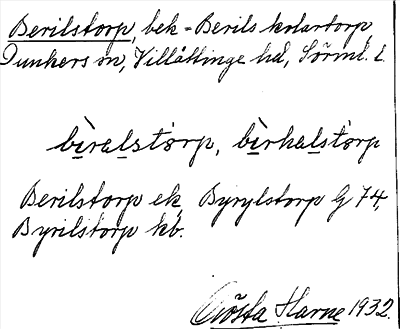 Berilstorp, bek = Berils kolartorp,
Dunkers sn, Villåttinge hd, Sörml. l.
bèralstòrp, bèrhalstòrp
Berilstorp ek Byrylstorp G 74,
Byrilstorp kb.
Gösta Harne 1932.